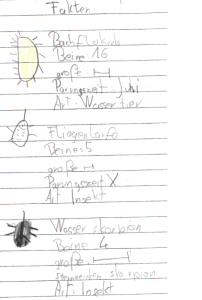 Fakten
Bachflohkreb
Beine 16
große
Parungszeit Juhi
Art: Wassertier
Fliegenlarfe
Beine: 5
große
Parungszeit X
Art Insekt
Wasser skorpion
Beine 4
große.
skorpion
Art: Insekt